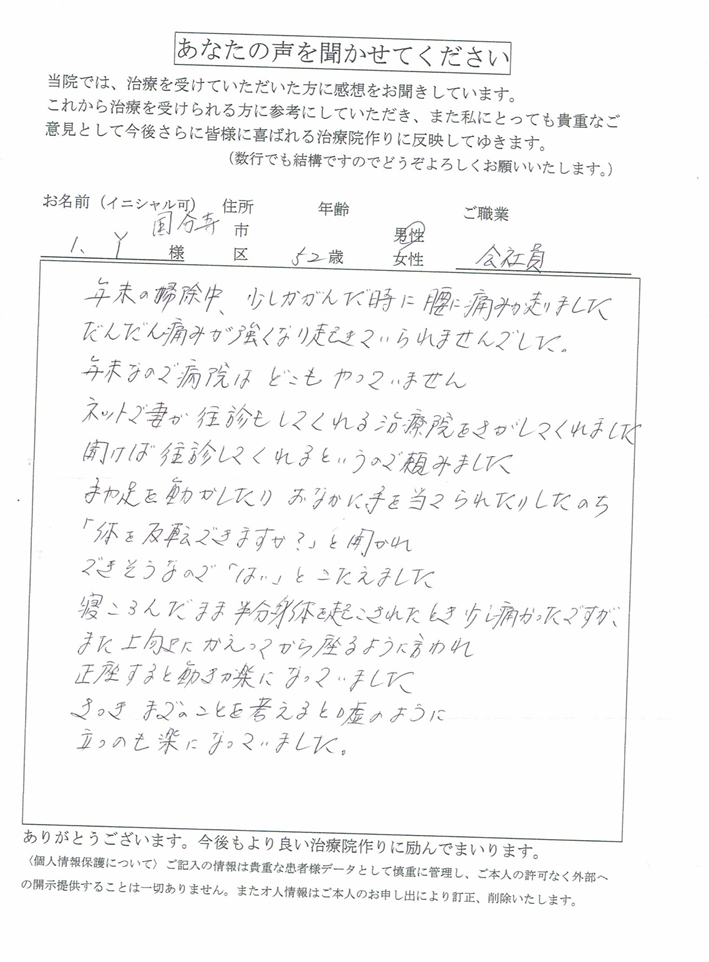 あなたの声を聞かせてください
当院では、治療を受けていただいた方に感想をお聞きしています。
これから治療を受けられる方に参考にしていただき、また私にとっても貴重なご
意見として今後さらに皆様に喜ばれる治療院作りに反映してゆきます。
（数行でも結構ですのでどうぞよろしくお願いいたします。）
お名前（イニシャル可） 住所 年齢 ご職業
国分寺 市 男性
I、Y 様 区 52歳 女性 会社員
年末の掃除中、少しかがんだ時に腰に痛みが走りました
だんだん痛みが強くなり起きていられませんでした。
年末なので病院はどこもやっていません
ネットで妻が往診もしてくれる治療院をさがしてくれました
聞けば往診してくれるというので頼みました
手や足を動かしたり おなかに手を当てられたりしたのち
「体を反転できますか？」と聞かれ
できそうなので「はい」とこたえました
寝ころんだまま半分身体を起こされたとき少し痛かったですが、
また上向きにかえってから座るように言われ
正座すると動きが楽になっていました
さっきまでのことを考えると嘘のように
立つのも楽になっていました。
ありがとうございます。今後もより良い治療院作りに励んでまいります。
〈個人情報保護について〉ご記入の情報は貴重な患者様データとして慎重に管理し、ご本人の許可なく外部へ
の開示提供することは一切ありません。またオ人情報はご本人のお申し出により訂正、削除いたします。